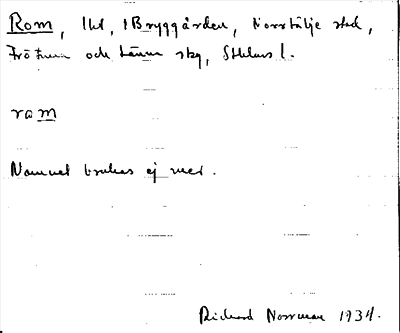 Rom, lht, i Bryggården, Norrtälje stad,
Frötuna och Länna skg, Sthlms l.
rom
Namnet brukas ej mer.
Rickard Norrman 1934.